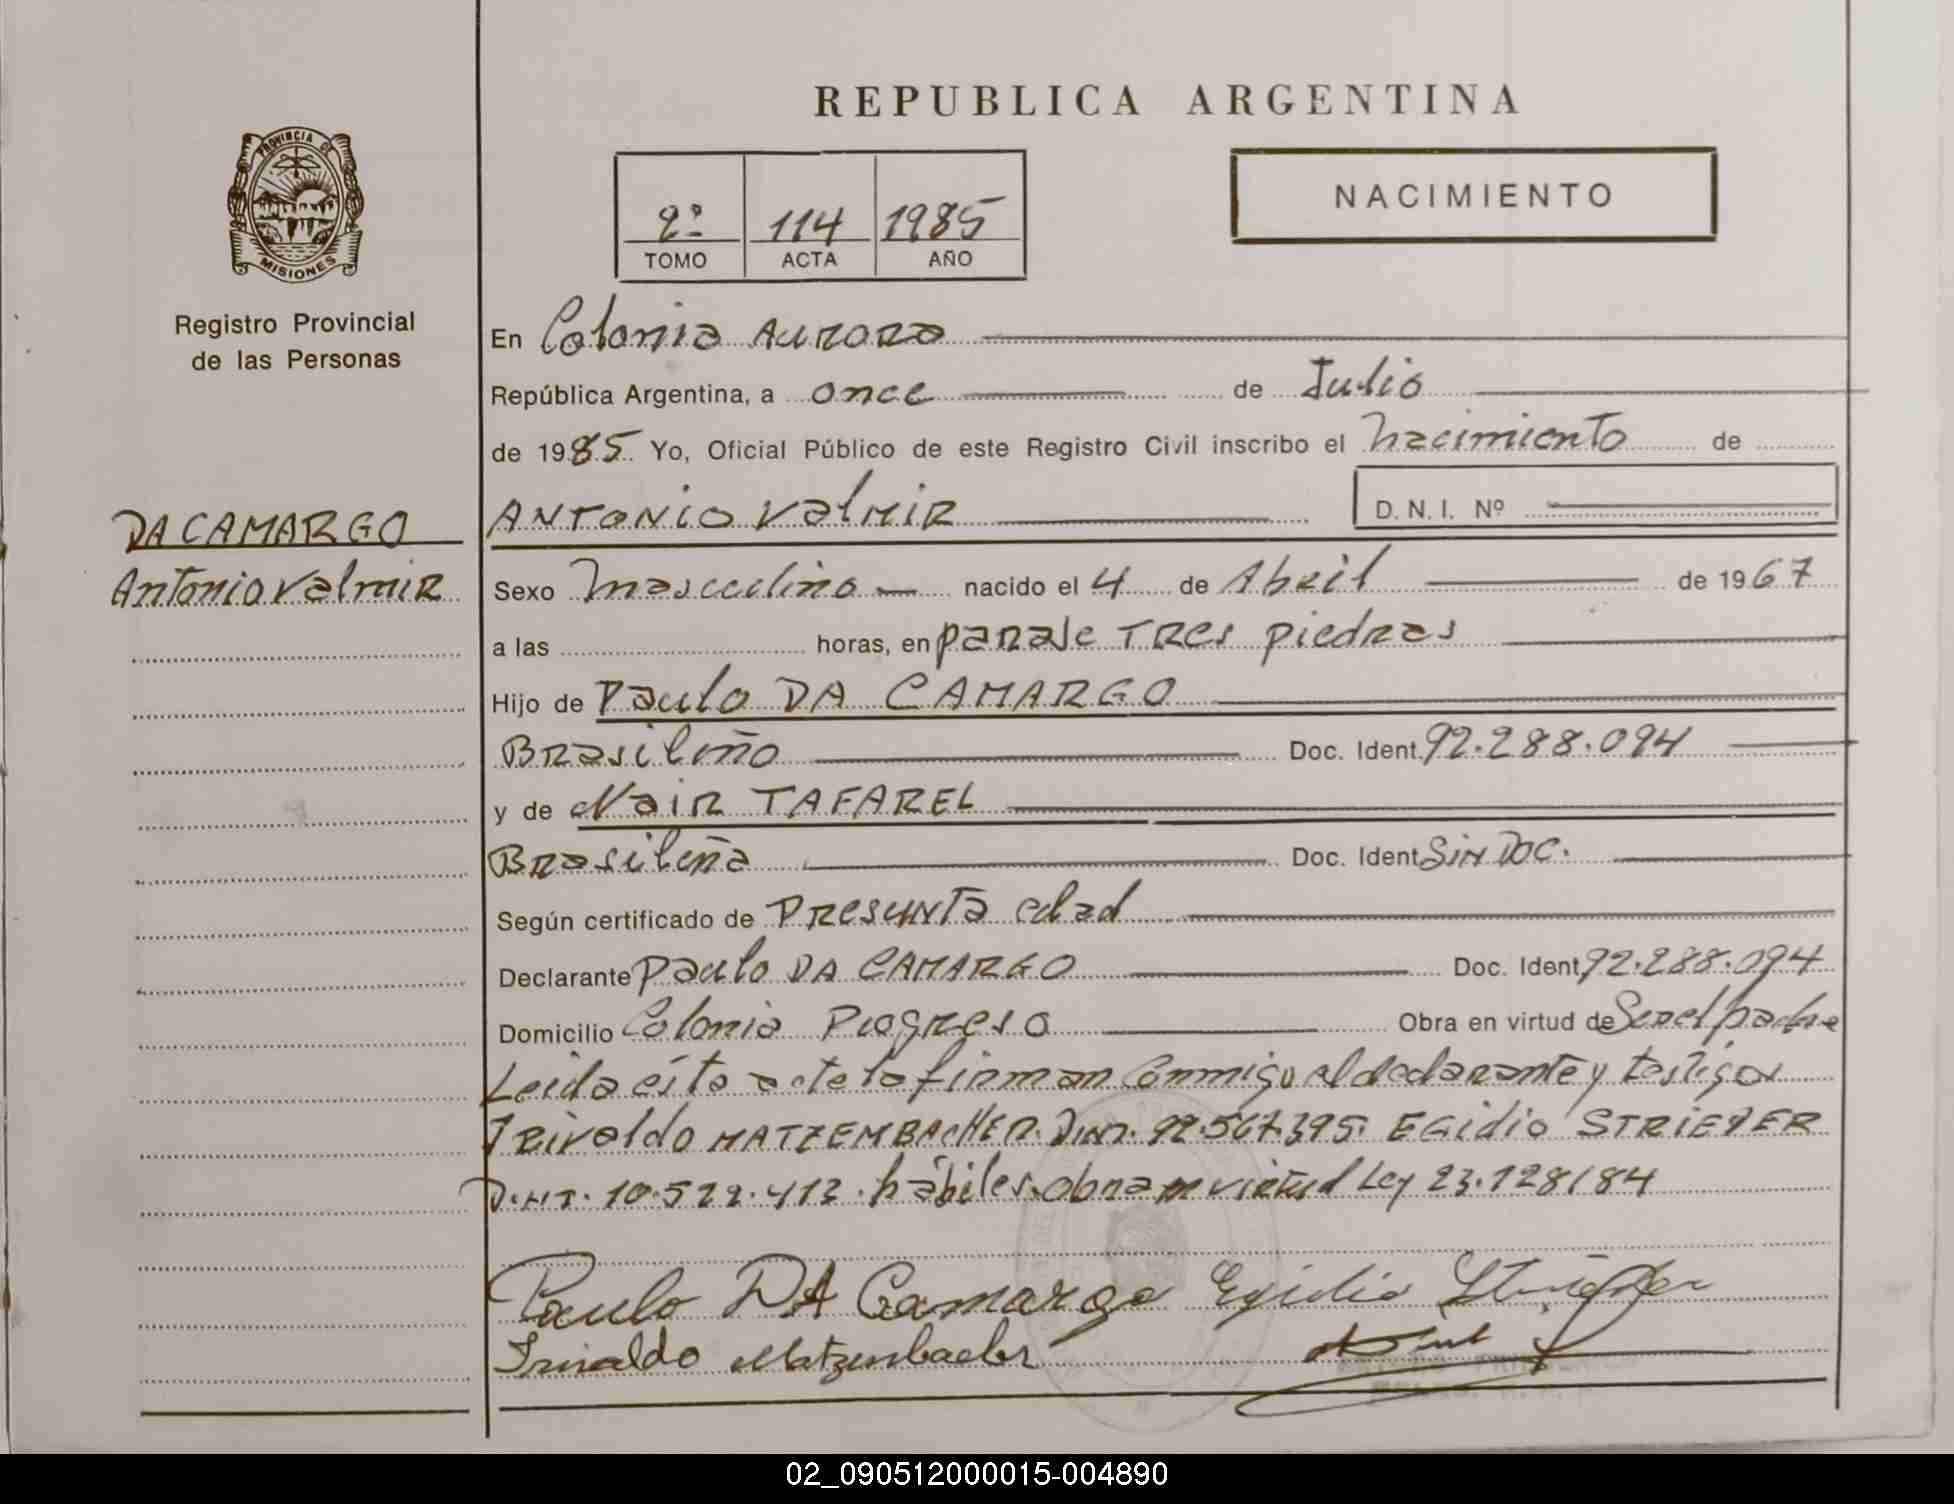 REPUBLICA ARGENTINA
PROVINCIA DE
MISIONES
Registro Provincial
de las Personas
2º 114 1985
TOMO ACTA AÑO
NACIMIENTO
En Colonia Aurora
República Argentina, a once de Julio
de 1985 Yo, Oficial Público de este Registro Civil inscribo el nacimiento de
ANTONIO Valmir D. N. I. Nº
DA CAMARGO
Antonio Valmir
Sexo masculino nacido el 4 de Abril de 1967
a las horas, en paraje Tres piedras
Hijo de Paulo DA CAMARGO
Brasileño Doc. Ident. 92.288.094
y de Nair TAFAREL
Brasileña Doc. Ident SIN DOC.
Según certificado de Presunta edad
Declarante Paulo DA CAMARGO Doc. Ident. 92.288.094
Domicilio Colonia Progreso Obra en virtud de Ser el padre
Leida ésta acta la firman conmigo el declarante y testigos
IRivaldo MATZEMBACHER. D.N.I. 92.567.395. EGidio STRIEDER
D.N.I. 10.529.412. hábiles. obra en virtud Ley 23.128/84
Paulo DA Camargo Egidio Strieder
Irivaldo Matzenbacher
02_090512000015-004890